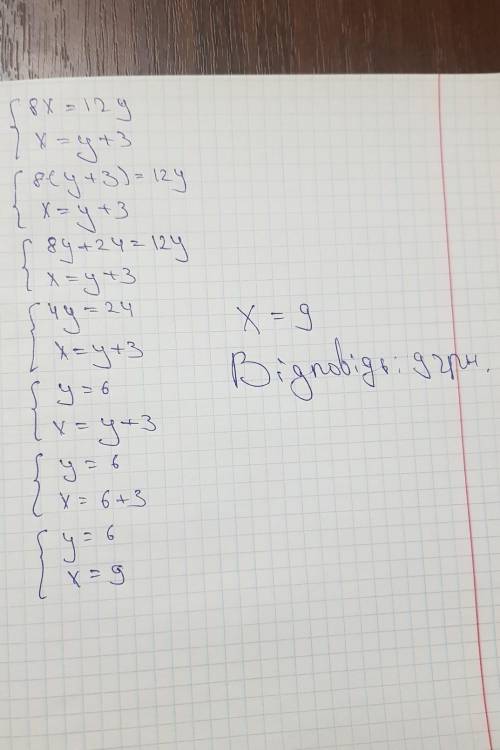 8x = 12y
x = y + 3
8·(y + 3) = 12y
x = y + 3
8y + 24 = 12y
x = y + 3
4y = 24
x = y + 3
y = 6
x = y + 3
y = 6
x = 6 + 3
y = 6
x = 9
x = 9
Відповідь: 9 грн.